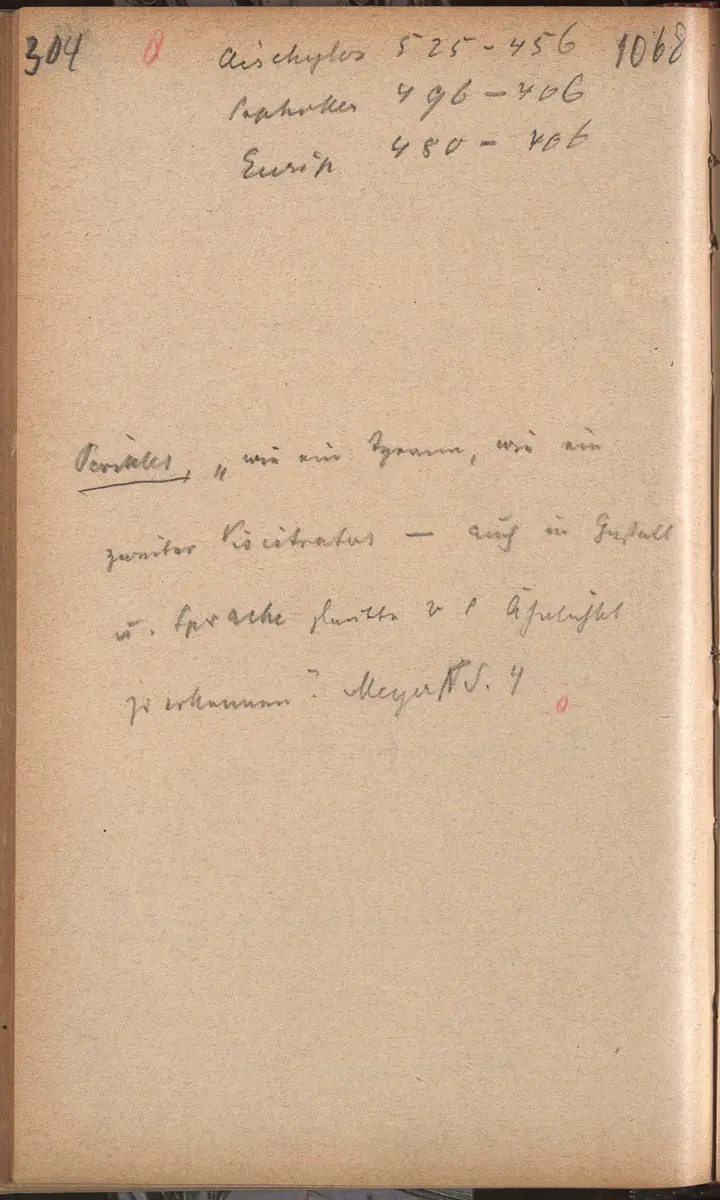 304 0 Aischylos 525-456 1068
Sophokles 496-406
Eurip 480-406
Perikles, „wie ein Tyrann, wie ein
zweiter Pisistratus — auch in Gestalt
u. Sprache glaubte Ähnlichkt
zu erkennen? Meyer IV S. 4
0